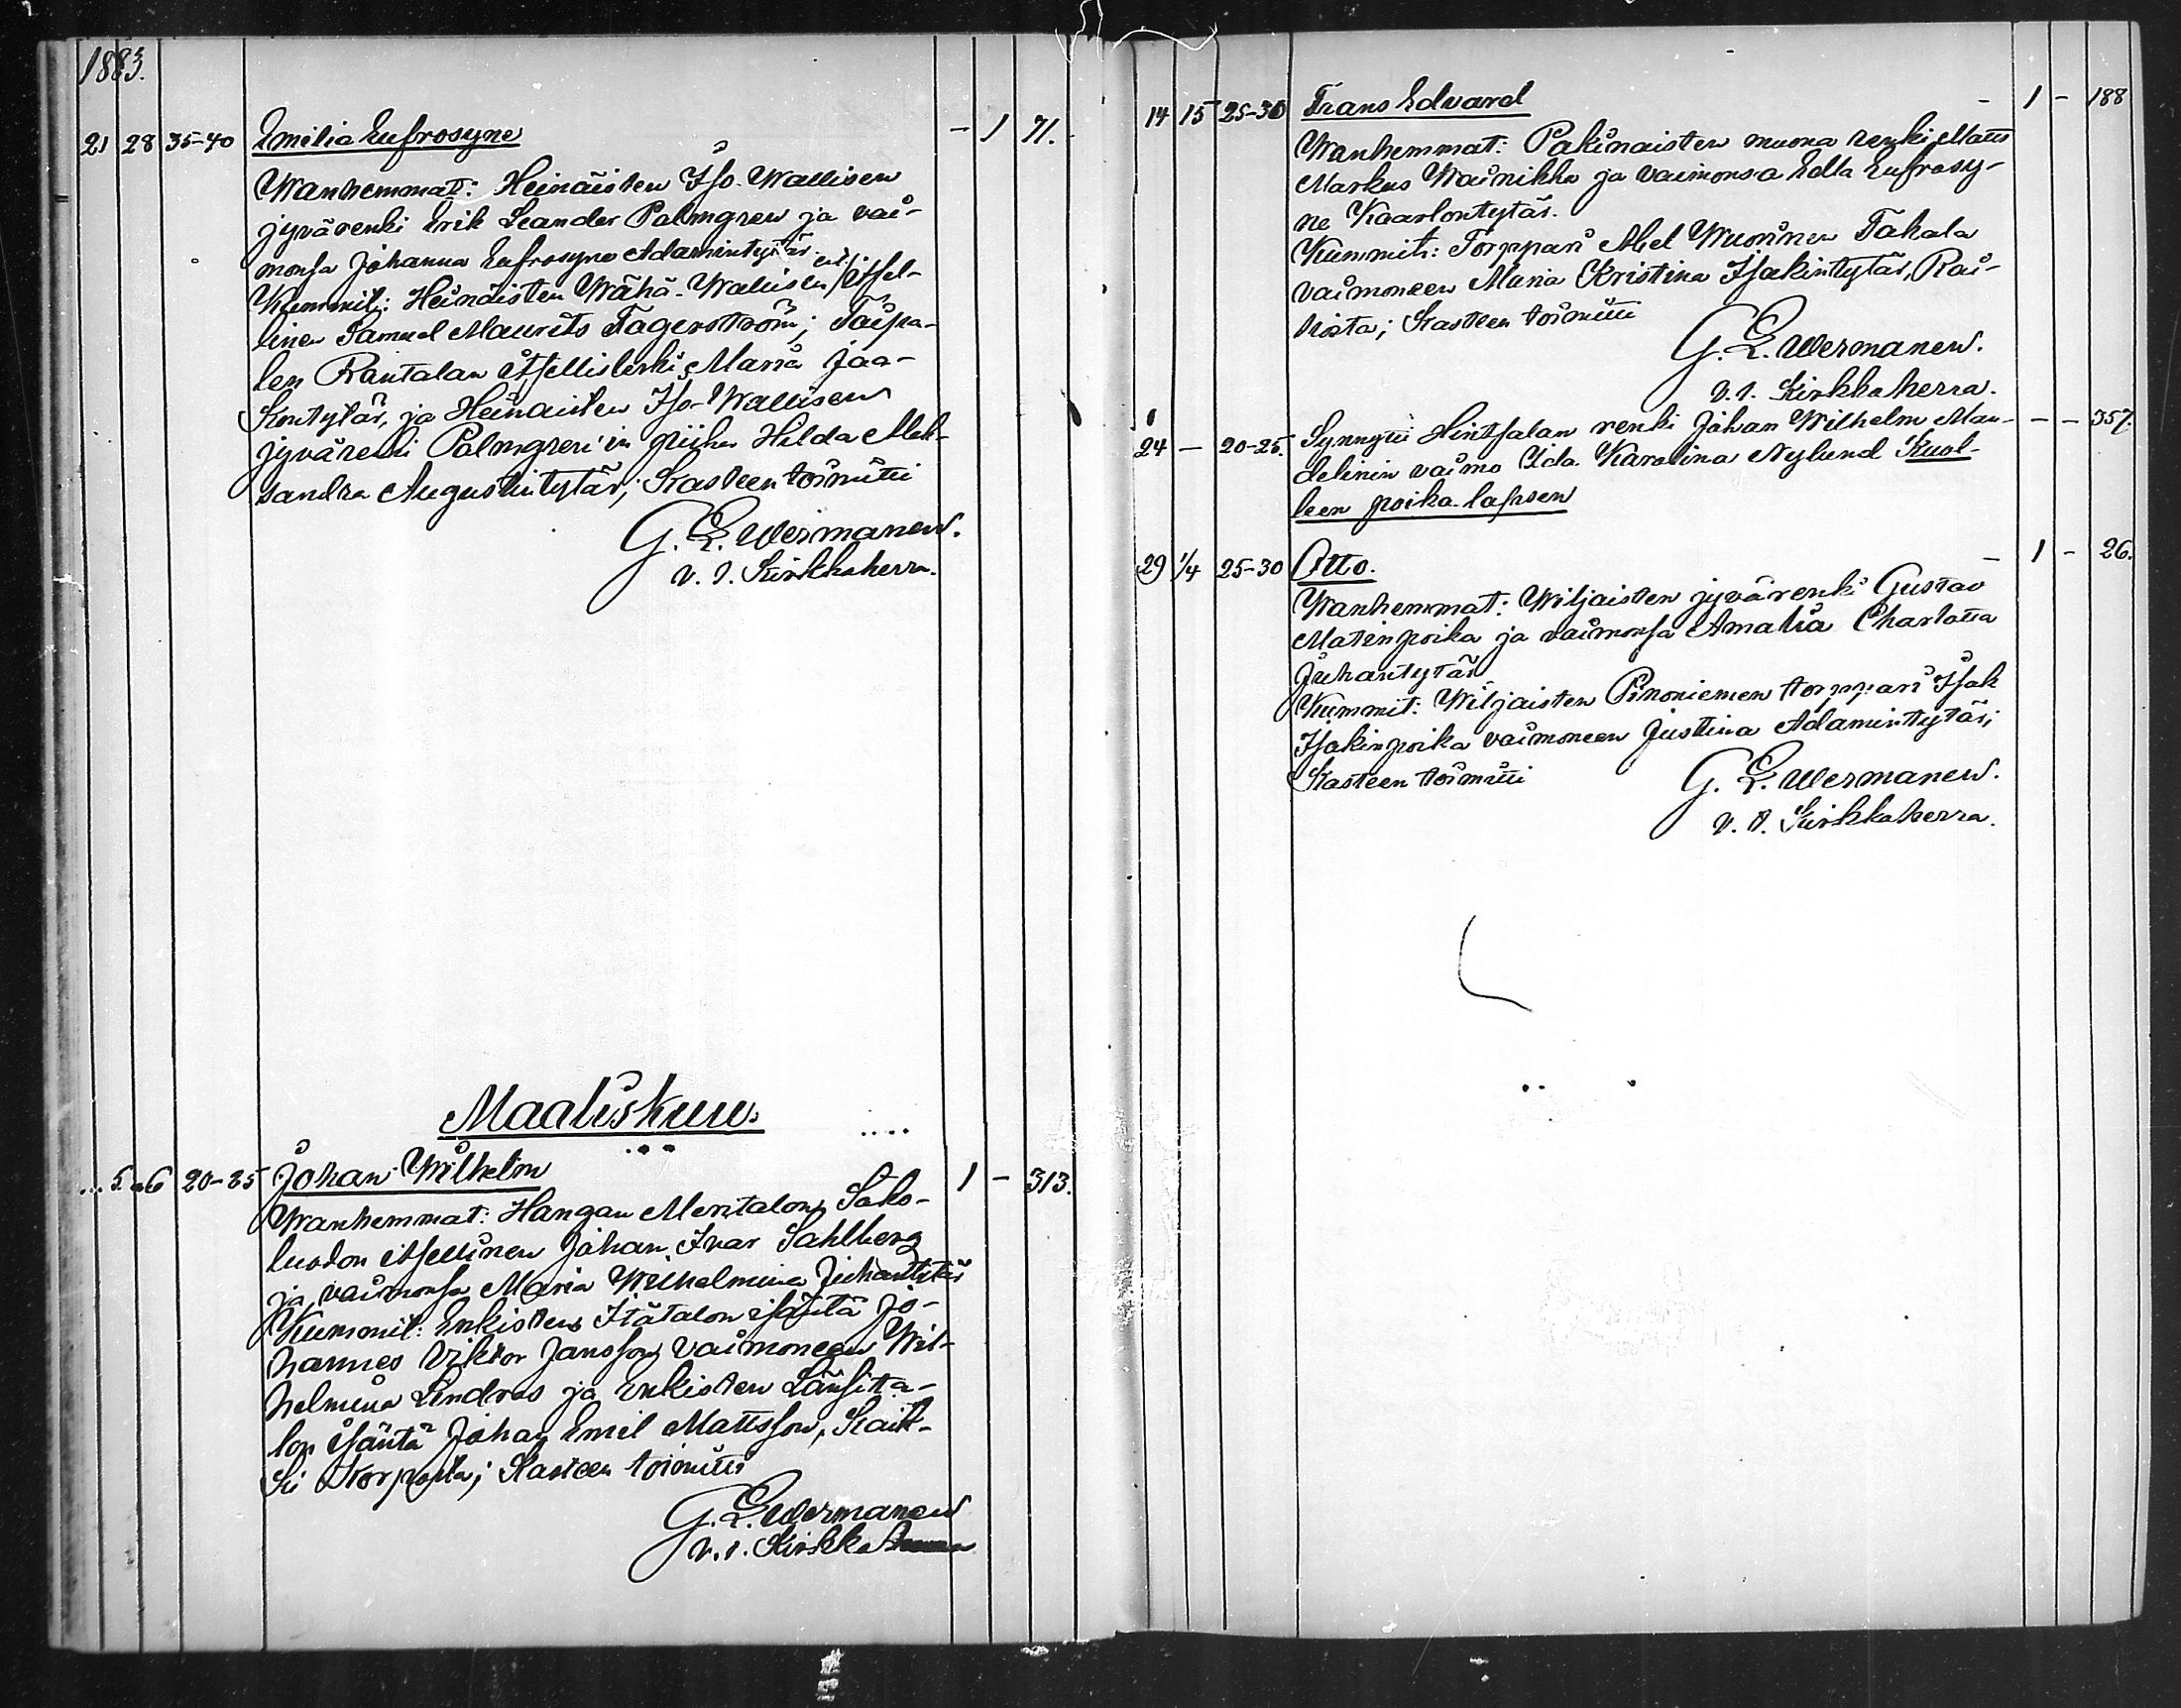 1883.
21 28 35-40 Emilia Eufrosyne - 1 71.
Wanhemmat: Heinäisten Iso-Wallisen
jyvärenki Erik Leander Palmgren ja vai-
monsa Johanna Eufrosyne Adamintytär
Kummit: Heinäisten Wähä-Wallisen itsel-
linen Samuel Maurits Fagerström; Taipa-
len Rantalan itsellisleski Maria Jaa-
kontytär, ja Heinäisten Iso-Wallisen
jyvärenki Palmgren'in piika Hilda Alek-
sandra Augustintytär; Kasteen toimitti
G. L. Wermanen.
v. t. Kirkkoherra.
Maaliskuu.
5. 6 20-25 Johan Wilhelm 1 - 313.
Wanhemmat: Hangan Meritalon, Sako-
luodon itsellinen Johan Ivar Sahlberg
ja vaimonsa Maria Wilhelmina Juhantytär
Kummit: Enkisten Itätalon isäntä Jo-
hannes Viktor Jansson vaimoneen Wil-
helmina Lindroos ja Enkisten Länsita-
lon isäntä Johan Emil Mattsson, Kaik-
ki Korposta; Kasteen toimitti
G. L. Wermanen
v. t. Kirkkoherra
14 15 25-30 Frans Edvard - 1 - 188
Wanhemmat: Pakinaisten muona renki Matts
Markus Wainikka ja vaimonsa Edla Eufrosy-
ne Kaarlontytär.
Kummit: Torppari Abel Wuorinen Takala
vaimoneen Maria Kristina Isakintytär, Rai-
siosta; Kasteen toimitti
G. L. Wermanen.
v. t. Kirkkoherra.
24 — 20-25. Synnytti Hintsalan renki Johan Wilhelm Man- - - 357.
delinin vaimo Ida Karolina Nylund Kuol-
leen poika-lapsen
29 1/4 25-30 Otto. - 1 - 26.
Wanhemmat: Wiljaisten jyvärenki Gustav
Matinpoika ja vaimonsa Amalia Charlotta
Juhantytär
Kummit: Wiljaisten Pinoniemen torppari Isak
Isakinpoika vaimoneen Justina Adamintytär;
Kasteen toimitti
G. L. Wermanen.
v. t. Kirkkoherra.